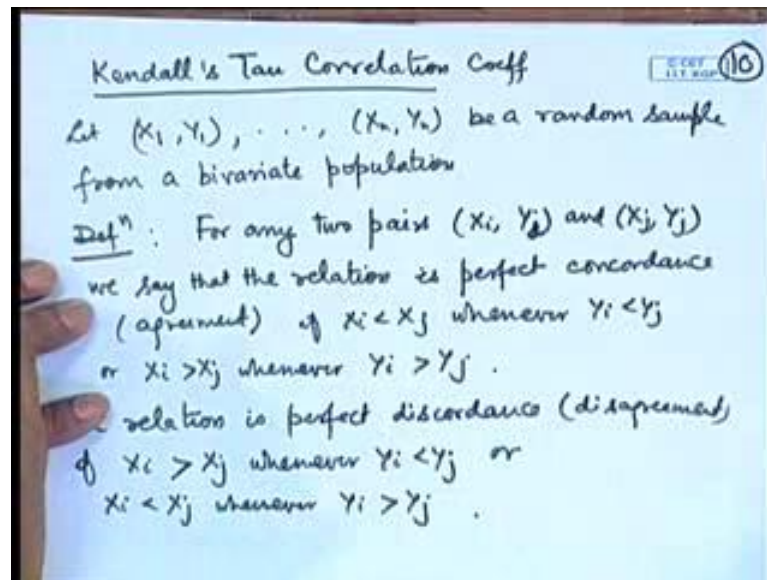 Kendall's Tau Correlation Coeff
© CET
I.I.T. KGP
110
Let (X1, Y1), . . . ., (Xn, Yn) be a random sample
from a bivariate population
Defn : For any two pairs (Xi, Yi) and (Xj, Yj)
we say that the relation is perfect concordance
(agreement) if Xi < Xj whenever Yi < Yj
or Xi > Xj whenever Yi > Yj .
relation is perfect discordance (disagreement)
if Xi > Xj whenever Yi < Yj or
Xi < Xj whenever Yi > Yj .